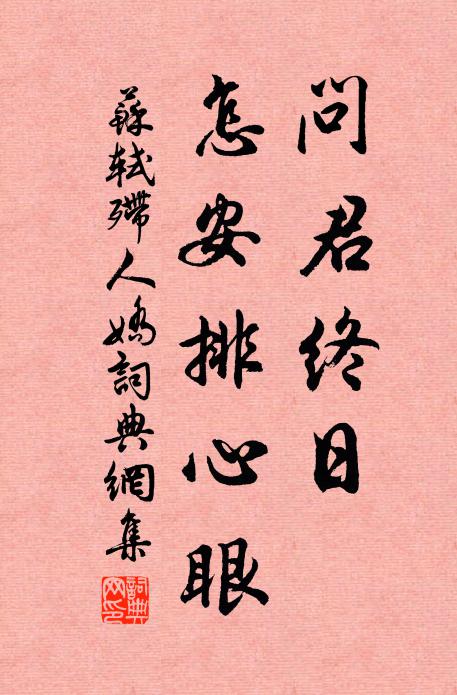 問君終日
怎安排心眼
蘇軾殢人嬌詞典網集
詞典網印